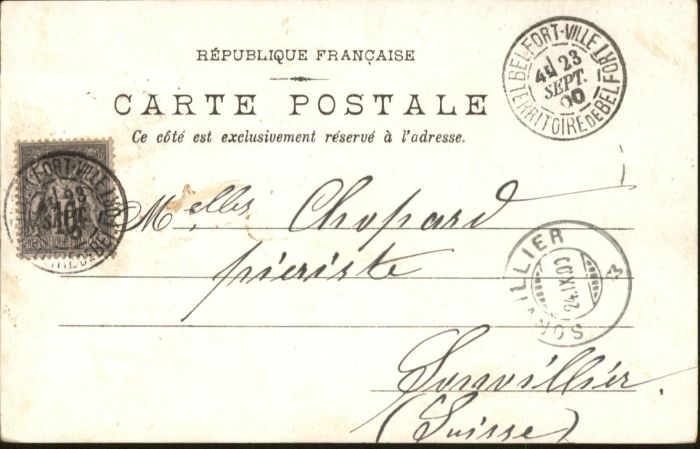 RÉPUBLIQUE FRANÇAISE
CARTE POSTALE
Ce côté est exclusivement réservé à l'adresse.
BELFORT-VILLE
4E 23
SEPT.
00
TERRITOIRE DE BELFORT
10c
Melles Chopard
pieriste
Sonvillier
(Suisse)
SONVILLIER
24.IX.00